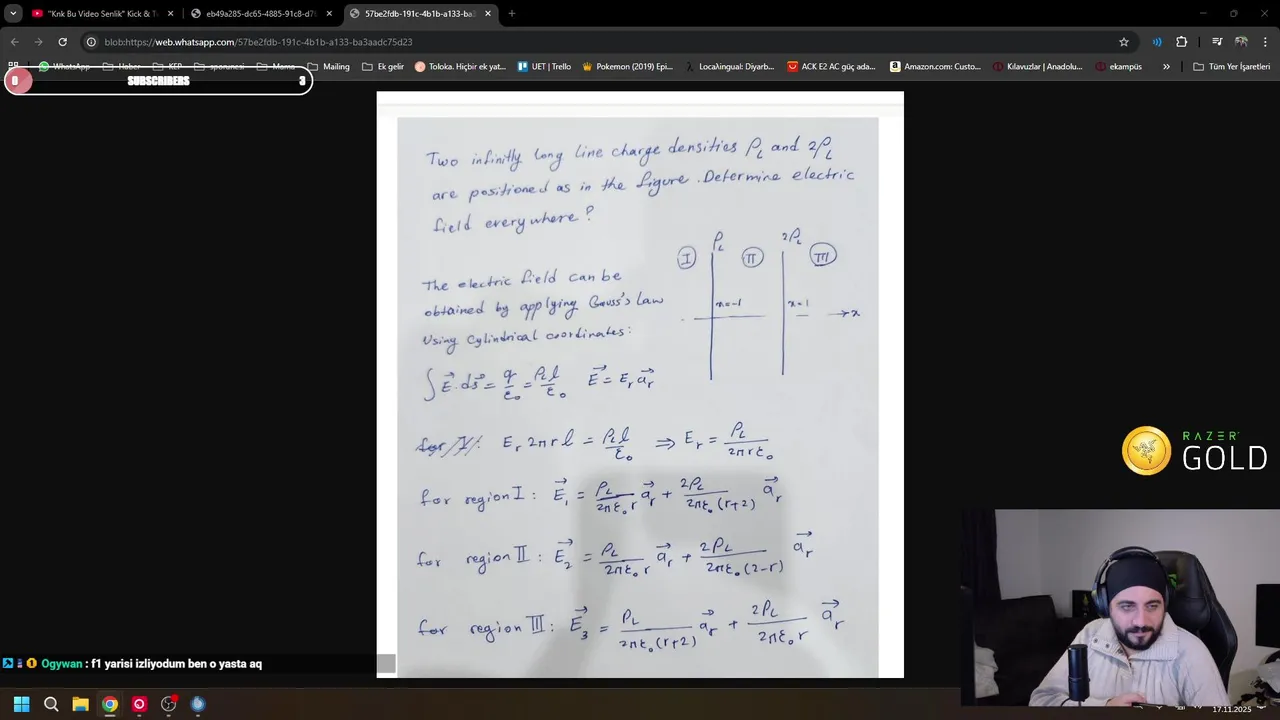 "Knk Bu Video Senlik" Kick & T
eb49a285-dc65-4885-91c8-d7
57be2fdb-191c-4b1b-a133-ba3
blob:https://web.whatsapp.com/57be2fdb-191c-4b1b-a133-ba3aadc75d23
WhatsApp Haber KEP sporuncsi Mama Mailing Ek gelir Toloka. Hiçbir ek yat... UET | Trello Pokemon (2019) Epi... Localingual: Diyarb... ACK E2 AC güç ada... Amazon.com: Custo... Kılavuzlar | Anadolu... ekampüs » Tüm Yer İşaretleri
0 SUBSCRIBERS 3
Two infinitly long line charge densities ρL and 2ρL
are positioned as in the figure. Determine electric
field everywhere?
I ρL II 2ρL III
x=-1 x=1 →x
The electric field can be
obtained by applying Gauss's law
using cylindrical coordinates:
∫E⃗.ds⃗ = q/ε₀ = ρL l/ε₀ E⃗ = Er a⃗r
for I: Er 2πrl = ρL l/ε₀ ⇒ Er = ρL/2πrε₀
for region I: E⃗₁ = ρL/2πε₀r a⃗r + 2ρL/2πε₀(r+2) a⃗r
for region II: E⃗₂ = ρL/2πε₀r a⃗r + 2ρL/2πε₀(2-r) a⃗r
for region III: E⃗₃ = ρL/2πε₀(r+2) a⃗r + 2ρL/2πε₀r a⃗r
RAZER
GOLD
Ogywan : f1 yarisi izliyodum ben o yasta aq
17.11.2025